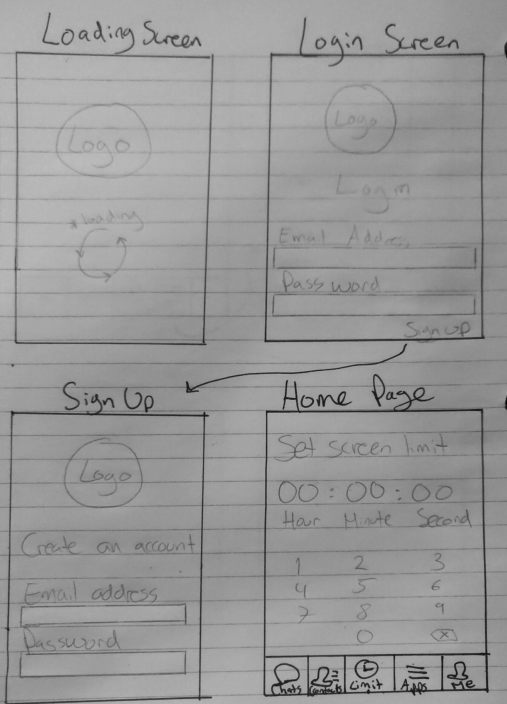 Loading Screen
Logo
*loading
Login Screen
Logo
Login
Email Address
Password
Sign Up
Sign Up
Logo
Create an account
Email address
Password
Home Page
Set screen limit
00:00:00
Hour Minute Second
1 2 3
4 5 6
7 8 9
0 X
Chats Contacts Limit Apps Me